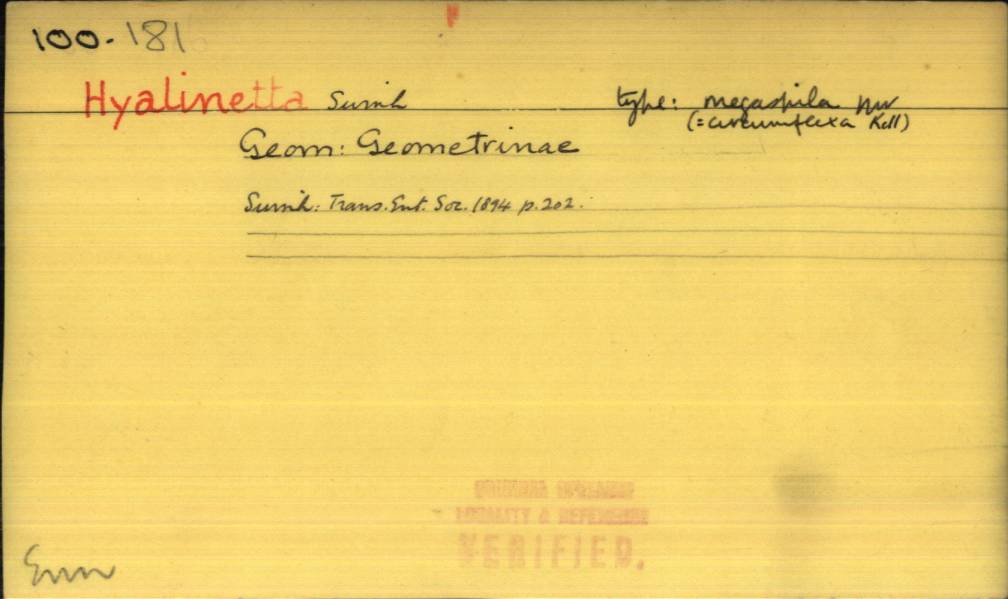 100-181
Hyalinetta Swinh type: megaspila Mr
(=circumflexa Koll)
Geom: Geometrinae
Swinh: Trans. Ent. Soc. 1894 p. 202.
ORIGINAL SPELLING
LOCALITY & REFERENCE
VERIFIED.